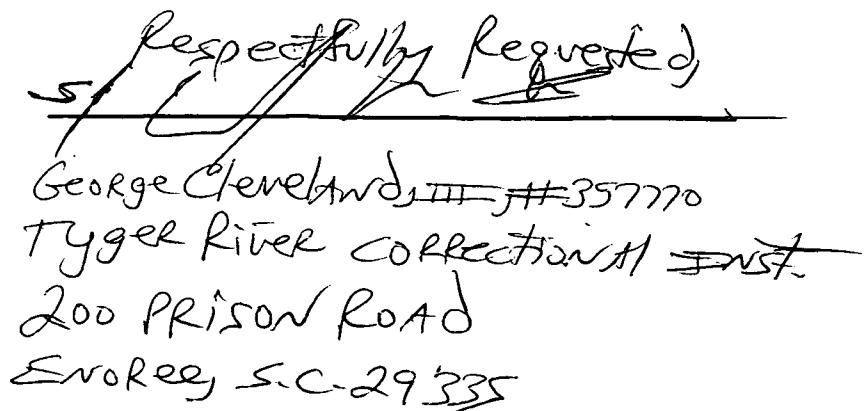 Respectfully Requested,
s/
George Cleveland, III, #357770
Tyger River Correctional Inst.
200 Prison Road
Enoree, S.C. 29335